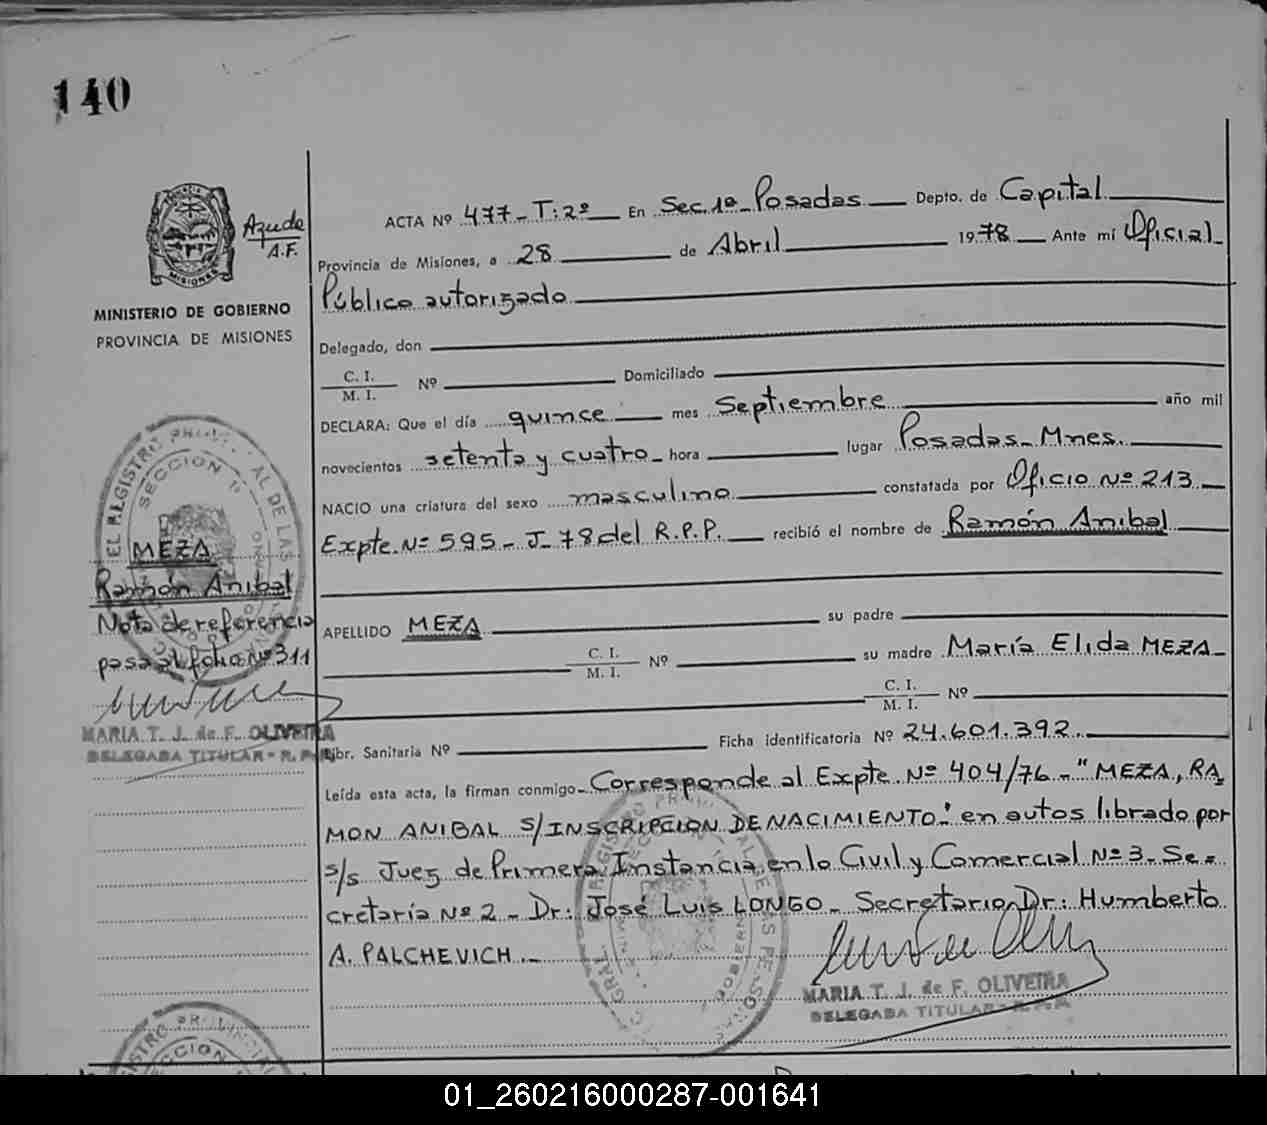 140
Ayude
A.F.
MINISTERIO DE GOBIERNO
PROVINCIA DE MISIONES
ACTA Nº 477 - T: 2º En Sec. 1ª - Posadas Depto. de Capital
Provincia de Misiones, a 28 de Abril 1978 Ante mí Oficial
Público autorizado
Delegado, don
C. I.
M. I. Nº Domiciliado
DECLARA: Que el día quince mes Septiembre año mil
novecientos setenta y cuatro - hora lugar Posadas - Mnes.
NACIO una criatura del sexo masculino constatada por Oficio Nº 213
Expte. Nº 595 - J - 78 del R.P.P. recibió el nombre de Ramón Anibal
APELLIDO MEZA su padre
C. I.
M. I. Nº su madre María Elida MEZA
C. I.
M. I. Nº
Libr. Sanitaria Nº Ficha identificatoria Nº 24.601.392
Leída esta acta, la firman conmigo - Corresponde al Expte. Nº 404/76 - "MEZA, RA=
MON ANIBAL S/INSCRIPCION DE NACIMIENTO" en autos librado por
s/s Juez de Primera Instancia en lo Civil y Comercial Nº 3 - Se=
cretaría Nº 2 - Dr: José Luis LONGO - Secretario Dr: Humberto
A. PALCHEVICH -
MARIA T. J. de F. OLIVEIRA
DELEGADA TITULAR - R. P. P.
MEZA
Ramón Anibal
Nota de referencia
pasa al folio Nº 311
MARIA T. J. de F. OLIVEIRA
DELEGADA TITULAR - R. P. P.
SECCION 1ª
SECCION
01_260216000287-001641